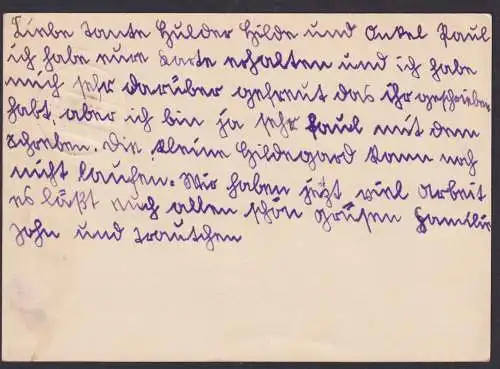 Liebe Tante Hulder Hilde und Onkel Paul
ich habe eure Karte erhalten und ich habe
mich sehr darüber gefreut das ihr geschrieben
habt, aber ich bin ja sehr faul mit dem
schreiben. Die kleine Hildegard kann noch
nicht laufen. Wir haben jetzt viel arbeit
es läßt euch allen schön grüsen Familie
John und Trautchen